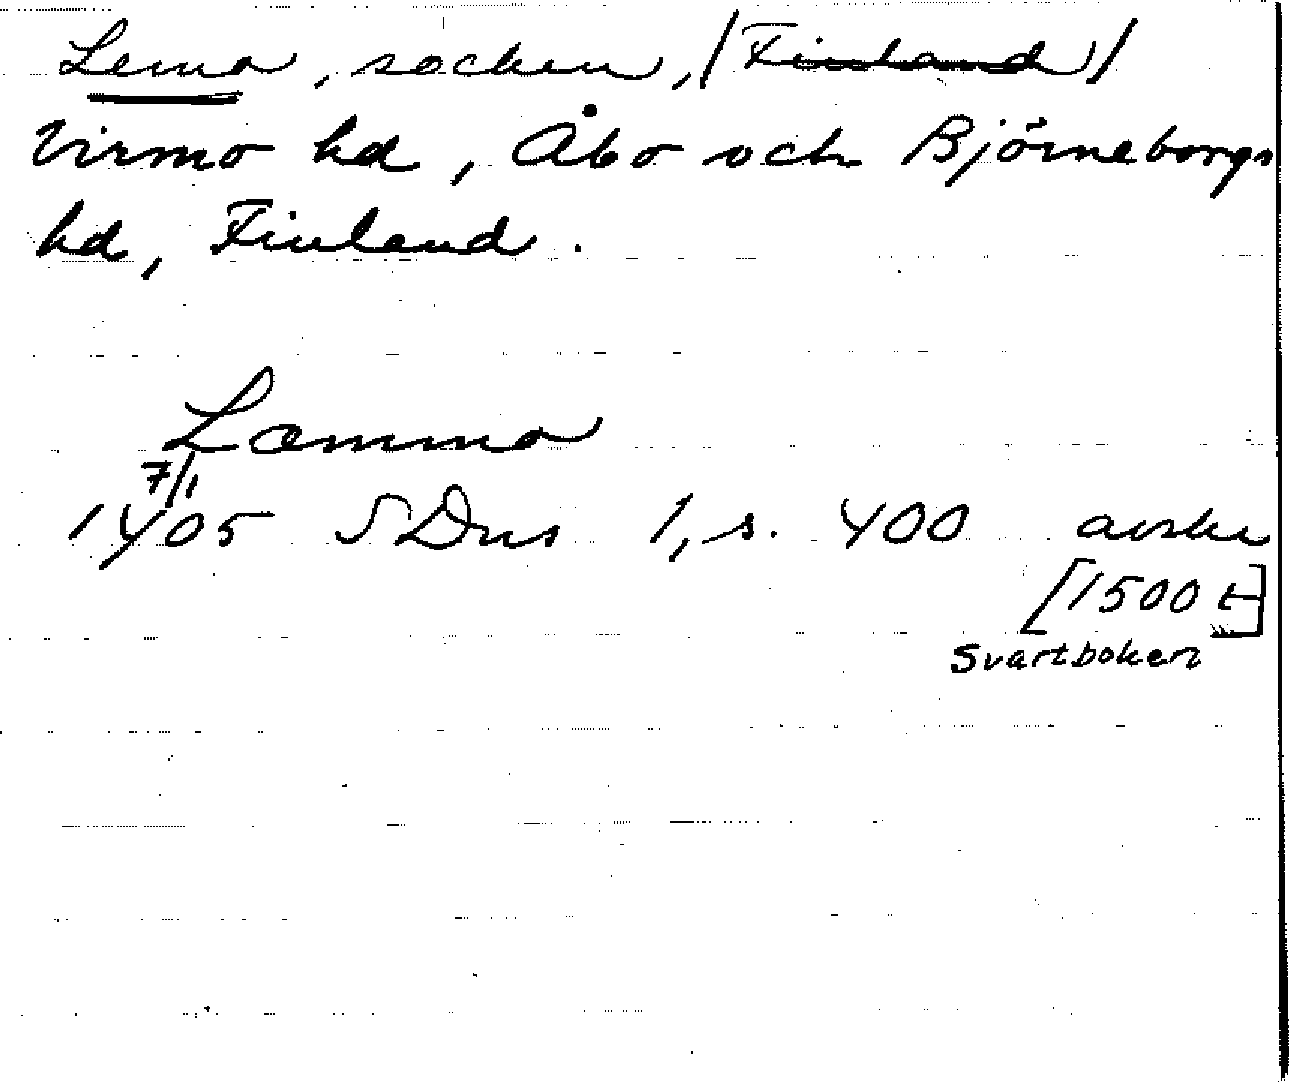 Lemo, socken, /Finland/
Virmo hd, Åbo och Björneborgs
hd, Finland.
Læmmo
7/1
1405 SDns 1, s. 400 avskr
[1500 t]
Svartboken